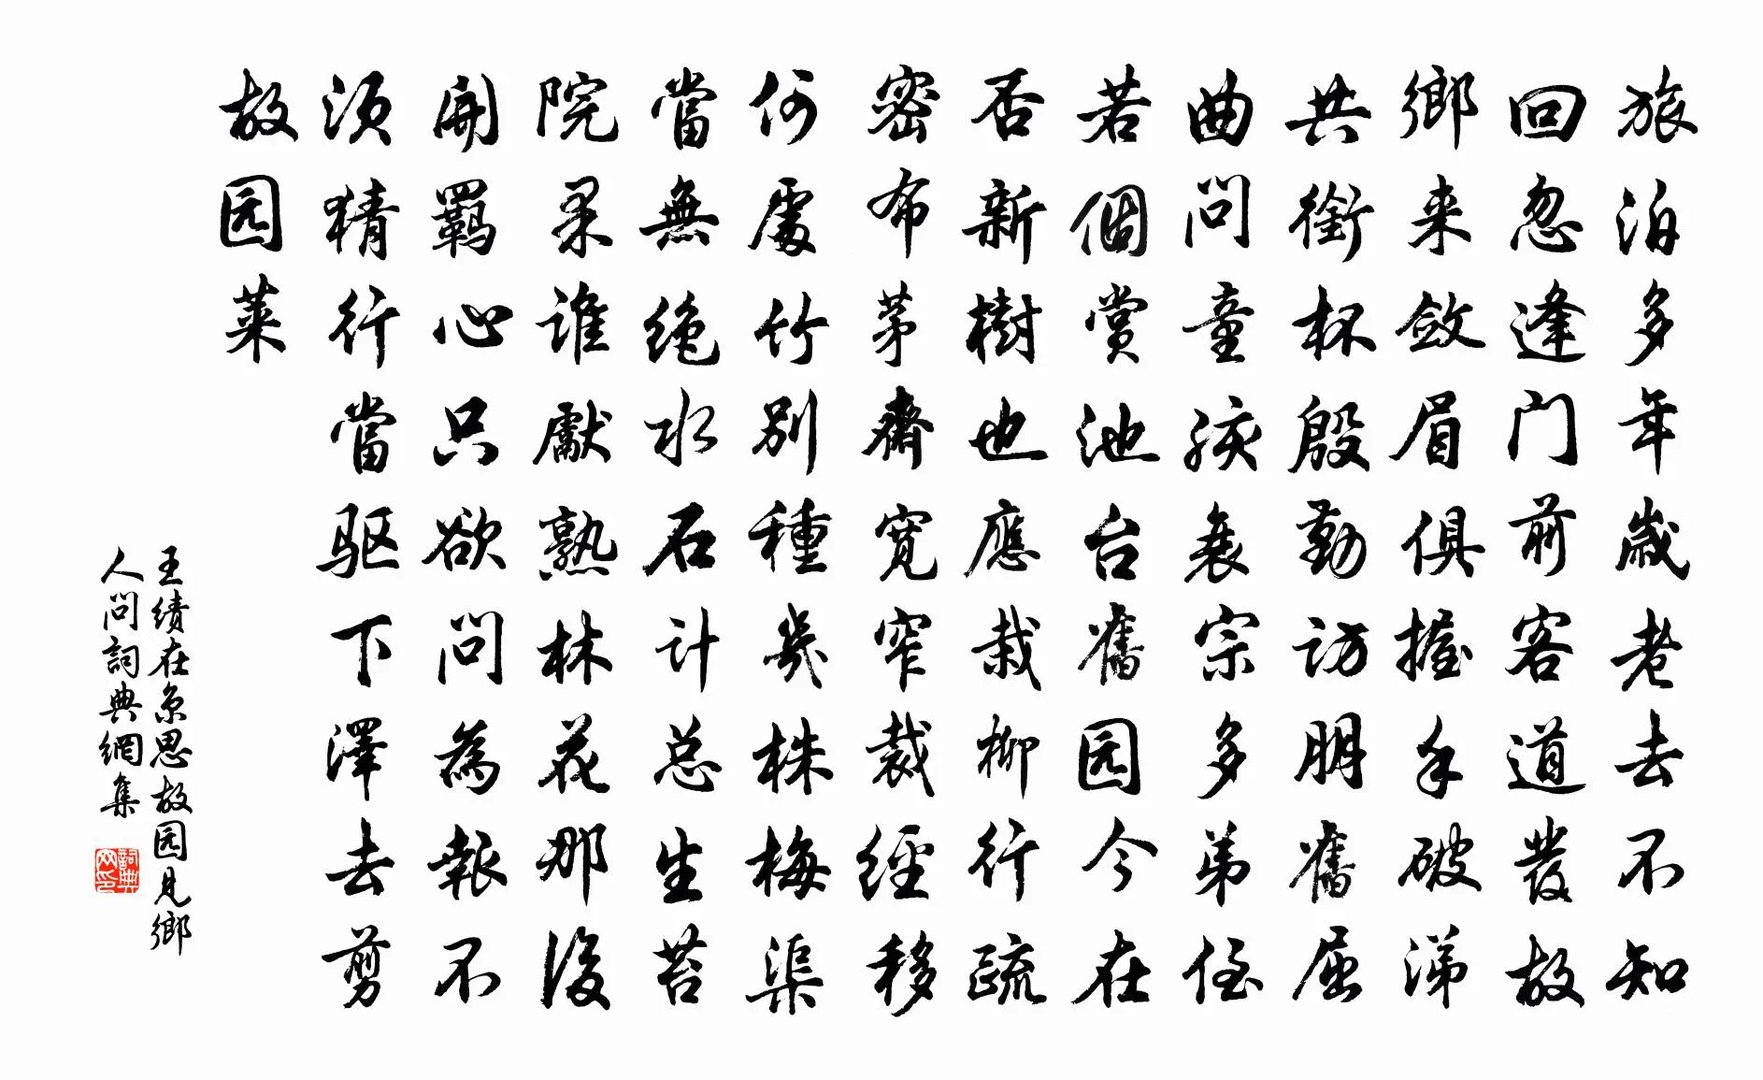 旅泊多年歲老去不知
回忽逢门前客道發故
鄉来斂眉俱握手破涕
共銜杯殷勤访朋舊屈
曲问童孩衰宗多弟侄
若個賞池台舊园今在
否新樹也應栽柳行疏
密布茅齋宽窄裁經移
何處竹別種幾株梅渠
當無绝水石计总生苔
院果谁獻熟林花那後
開羈心只欲问為報不
须猜行當驱下澤去剪
故园莱
王績在京思故园見鄉
人问詞典網集
詞典网印